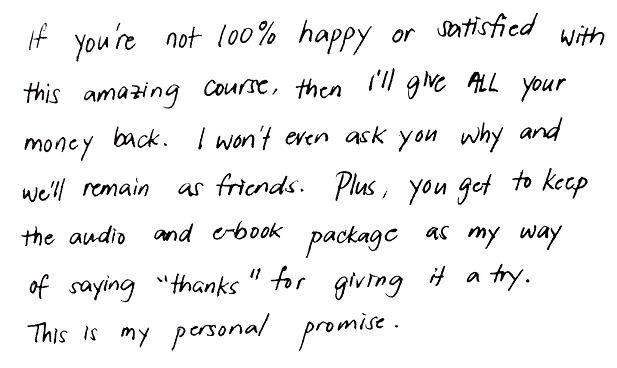 If you're not 100% happy or satisfied with
this amazing course, then I'll give ALL your
money back. I won't even ask you why and
we'll remain as friends. Plus, you get to keep
the audio and e-book package as my way
of saying "thanks" for giving it a try.
This is my personal promise.